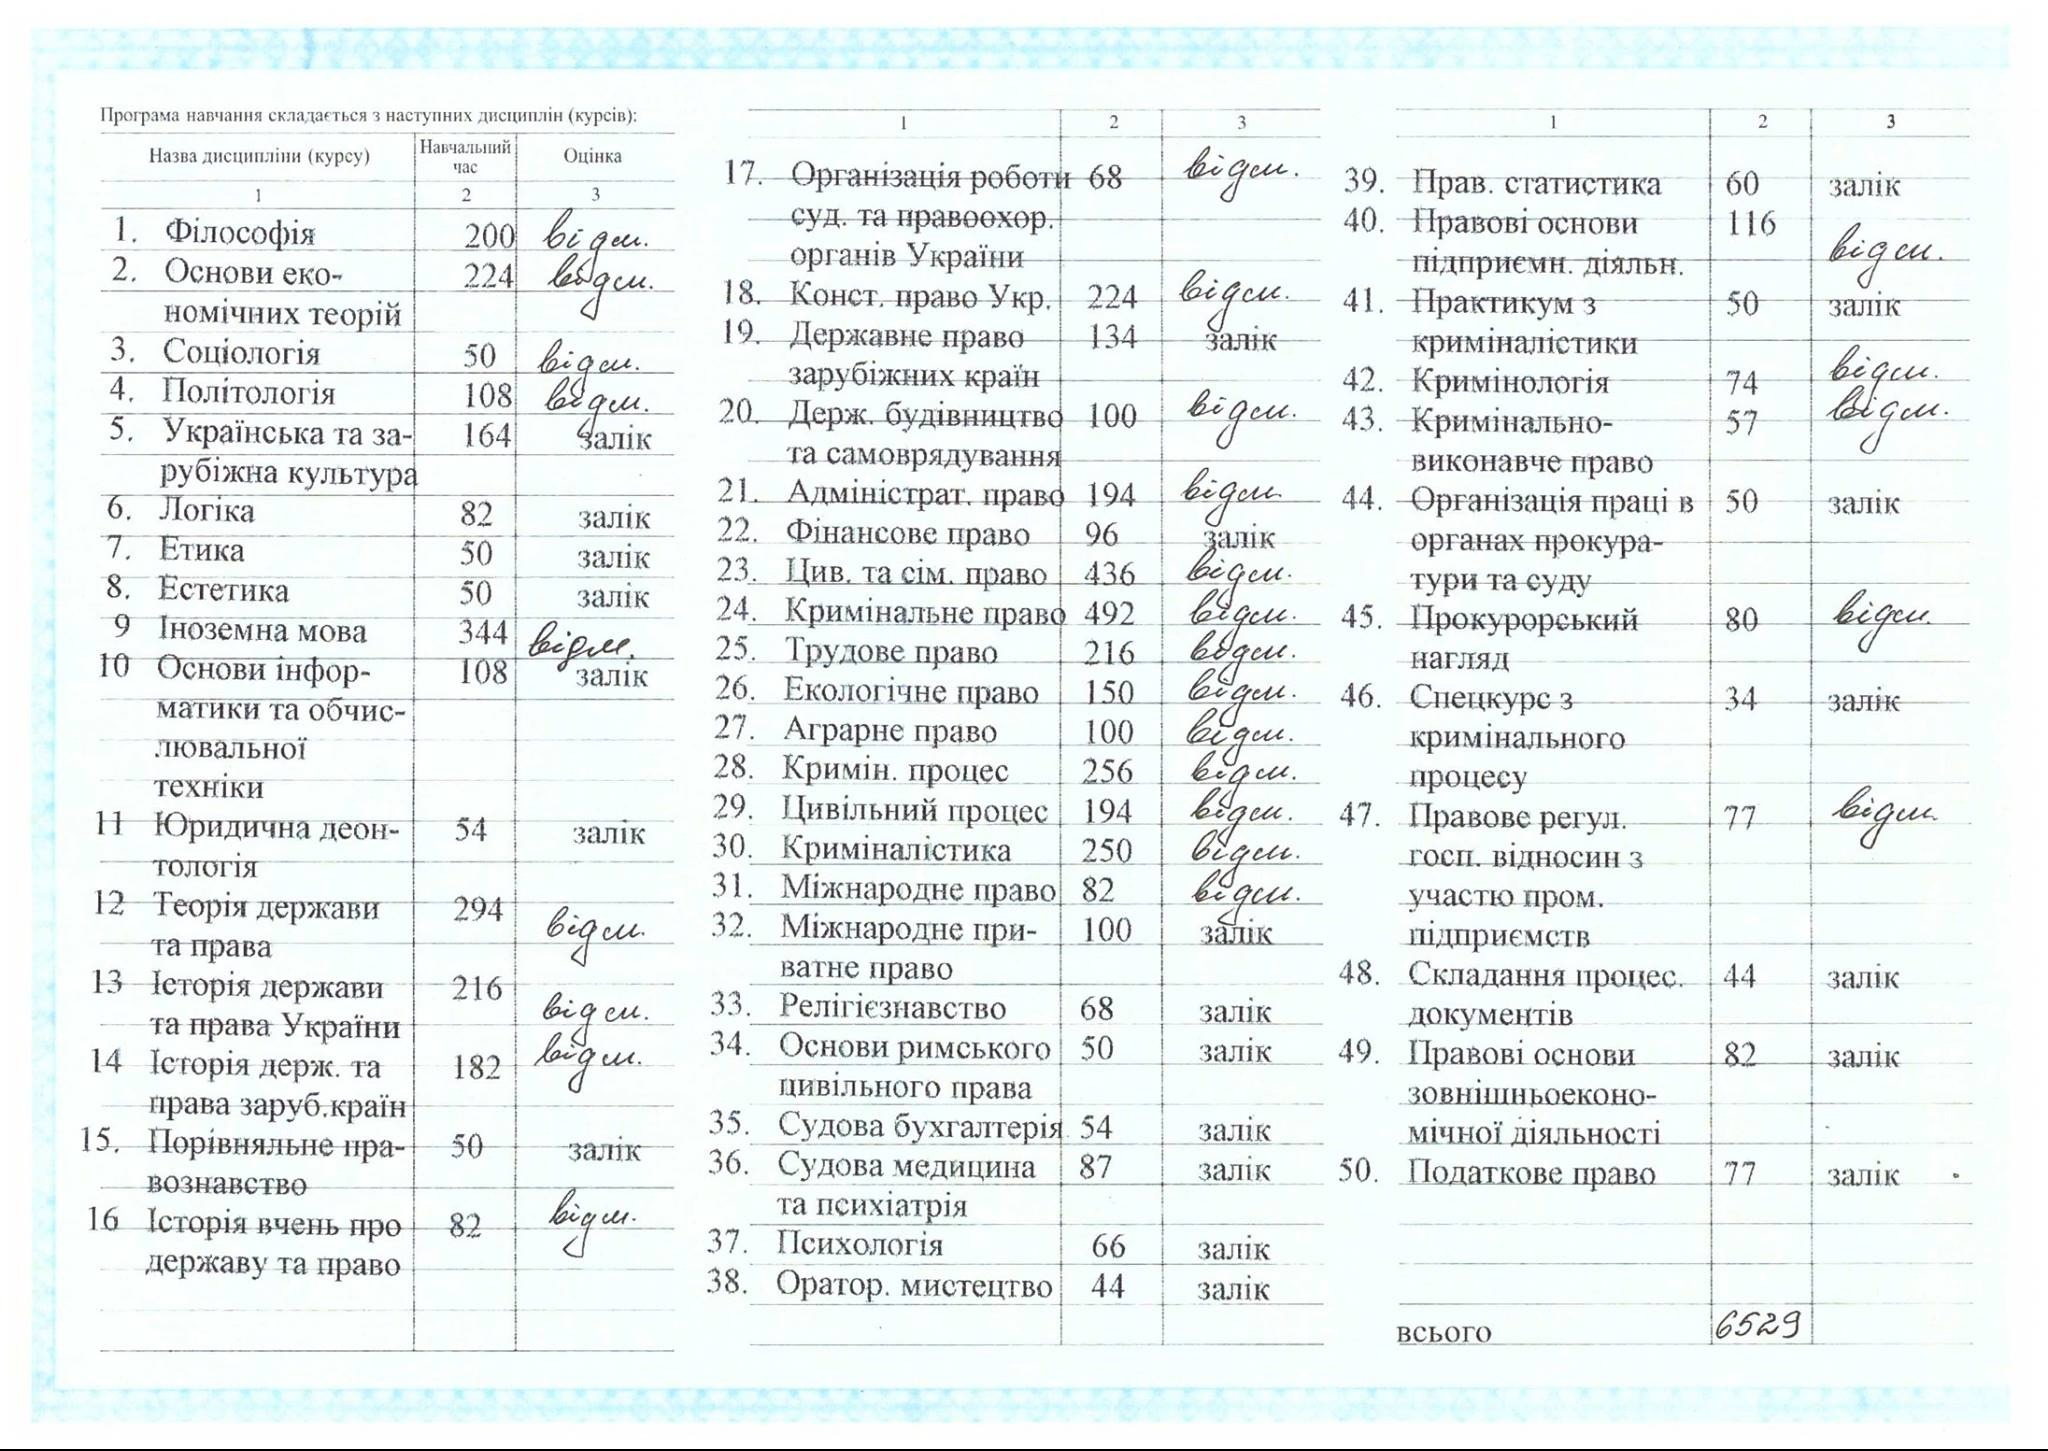 Програма навчання складається з наступних дисциплін (курсів):
Назва дисципліни (курсу) Навчальний час Оцінка
1 2 3
1. Філософія 200 відм.
2. Основи еко- 224 відм.
номічних теорій
3. Соціологія 50 відм.
4. Політологія 108 відм.
5. Українська та за- 164 залік
рубіжна культура
6. Логіка 82 залік
7. Етика 50 залік
8. Естетика 50 залік
9 Іноземна мова 344 відм.
10 Основи інфор- 108 залік
матики та обчис-
лювальної
техніки
11 Юридична деон- 54 залік
тологія
12 Теорія держави 294 відм.
та права
13 Історія держави 216 відм.
та права України
14 Історія держ. та 182 відм.
права заруб.країн
15. Порівняльне пра- 50 залік
вознавство
16 Історія вчень про 82 відм.
державу та право
1 2 3
17. Організація роботи 68 відм.
суд. та правоохор.
органів України
18. Конст. право Укр. 224 відм.
19. Державне право 134 залік
зарубіжних країн
20. Держ. будівництво 100 відм.
та самоврядування
21. Адміністрат. право 194 відм.
22. Фінансове право 96 залік
23. Цив. та сім. право 436 відм.
24. Кримінальне право 492 відм.
25. Трудове право 216 відм.
26. Екологічне право 150 відм.
27. Аграрне право 100 відм.
28. Кримін. процес 256 відм.
29. Цивільний процес 194 відм.
30. Криміналістика 250 відм.
31. Міжнародне право 82 відм.
32. Міжнародне при- 100 залік
ватне право
33. Релігієзнавство 68 залік
34. Основи римського 50 залік
цивільного права
35. Судова бухгалтерія 54 залік
36. Судова медицина 87 залік
та психіатрія
37. Психологія 66 залік
38. Оратор. мистецтво 44 залік
1 2 3
39. Прав. статистика 60 залік
40. Правові основи 116 відм.
підприємн. діяльн.
41. Практикум з 50 залік
криміналістики
42. Кримінологія 74 відм.
43. Кримінально- 57 відм.
виконавче право
44. Організація праці в 50 залік
органах прокура-
тури та суду
45. Прокурорський 80 відм.
нагляд
46. Спецкурс з 34 залік
кримінального
процесу
47. Правове регул. 77 відм.
госп. відносин з
участю пром.
підприємств
48. Складання процес. 44 залік
документів
49. Правові основи 82 залік
зовнішньоеконо-
мічної діяльності
50. Податкове право 77 залік
всього 6529